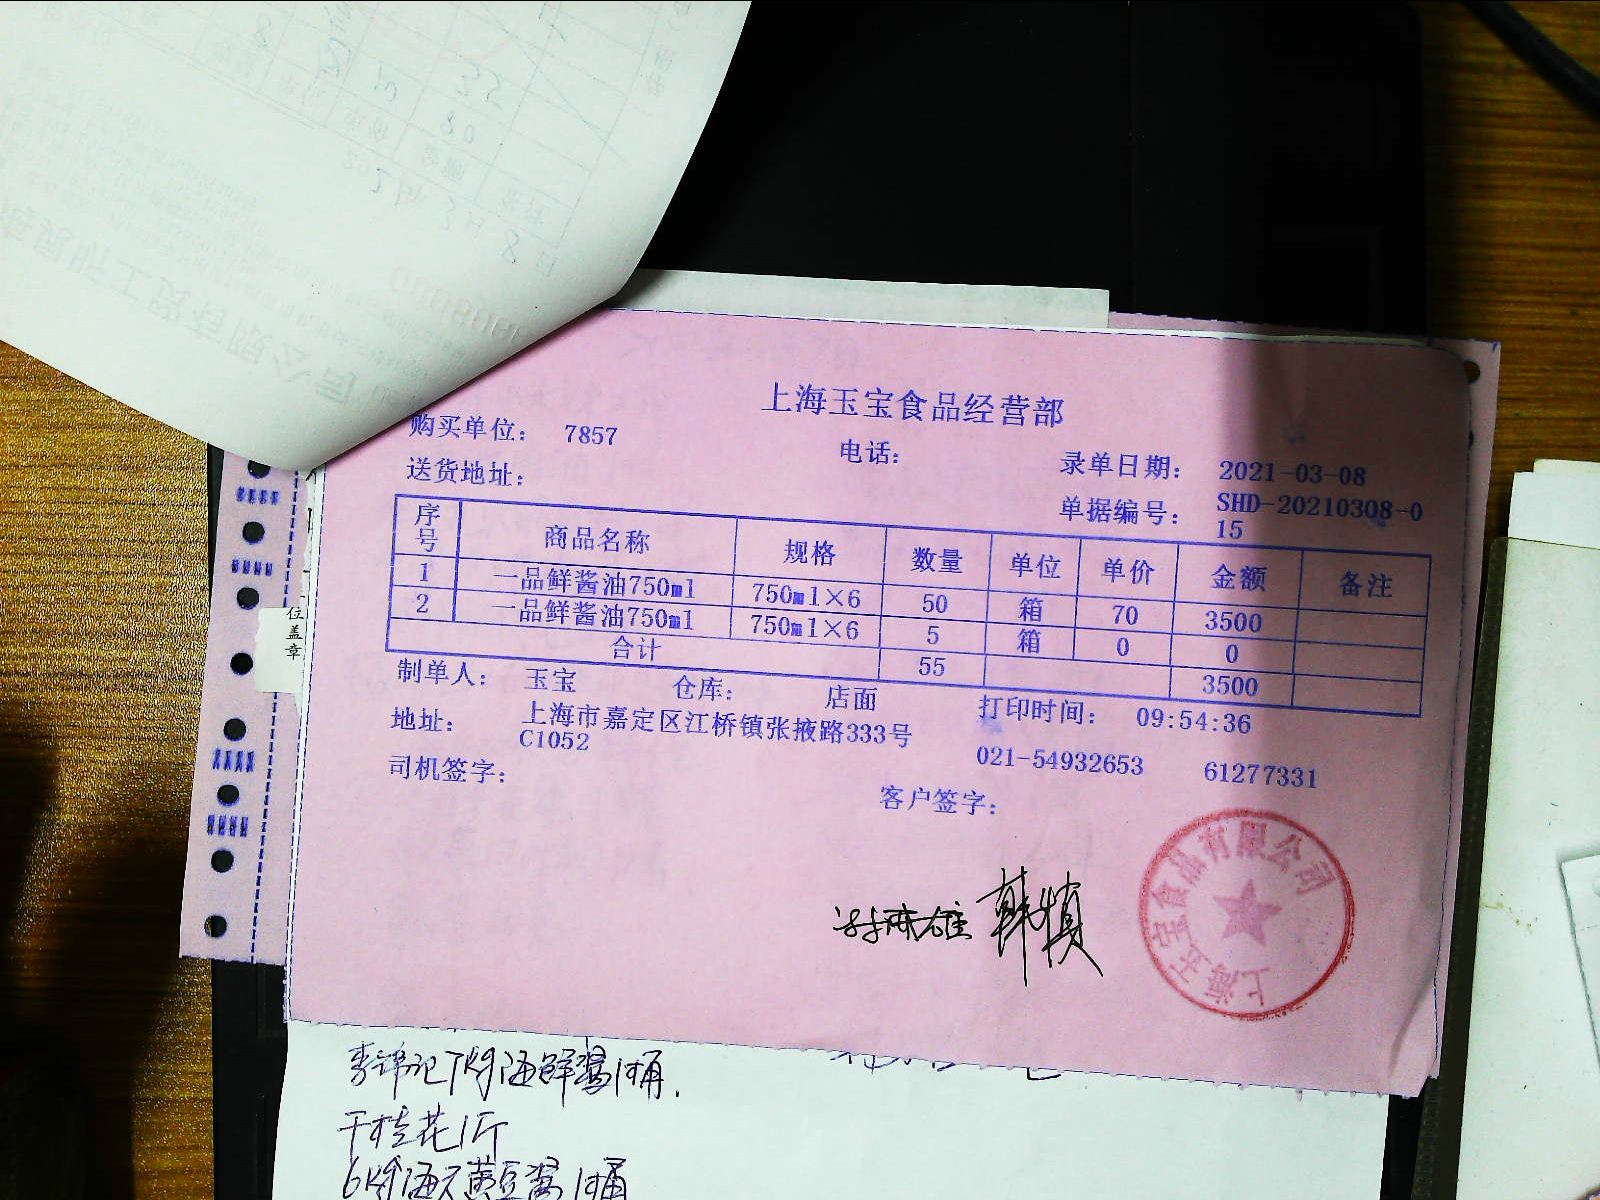 上海玉宝食品经营部
购买单位： 7857
电话：
录单日期： 2021-03-08
送货地址：
单据编号： SHD-20210308-0
15
序号 商品名称 规格 数量 单位 单价 金额 备注
1 一品鲜酱油750ml 750ml×6 50 箱 70 3500
2 一品鲜酱油750ml 750ml×6 5 箱 0 0
合计 55 3500
制单人： 玉宝 仓库： 店面 打印时间： 09:54:36
地址： 上海市嘉定区江桥镇张掖路333号
C1052
021-54932653 61277331
司机签字：
客户签字：
韩慎
上海玉宝食品有限公司
位盖章
李锦记7kg海鲜酱1桶.
干桂花1斤
6kg海天黄豆酱1桶